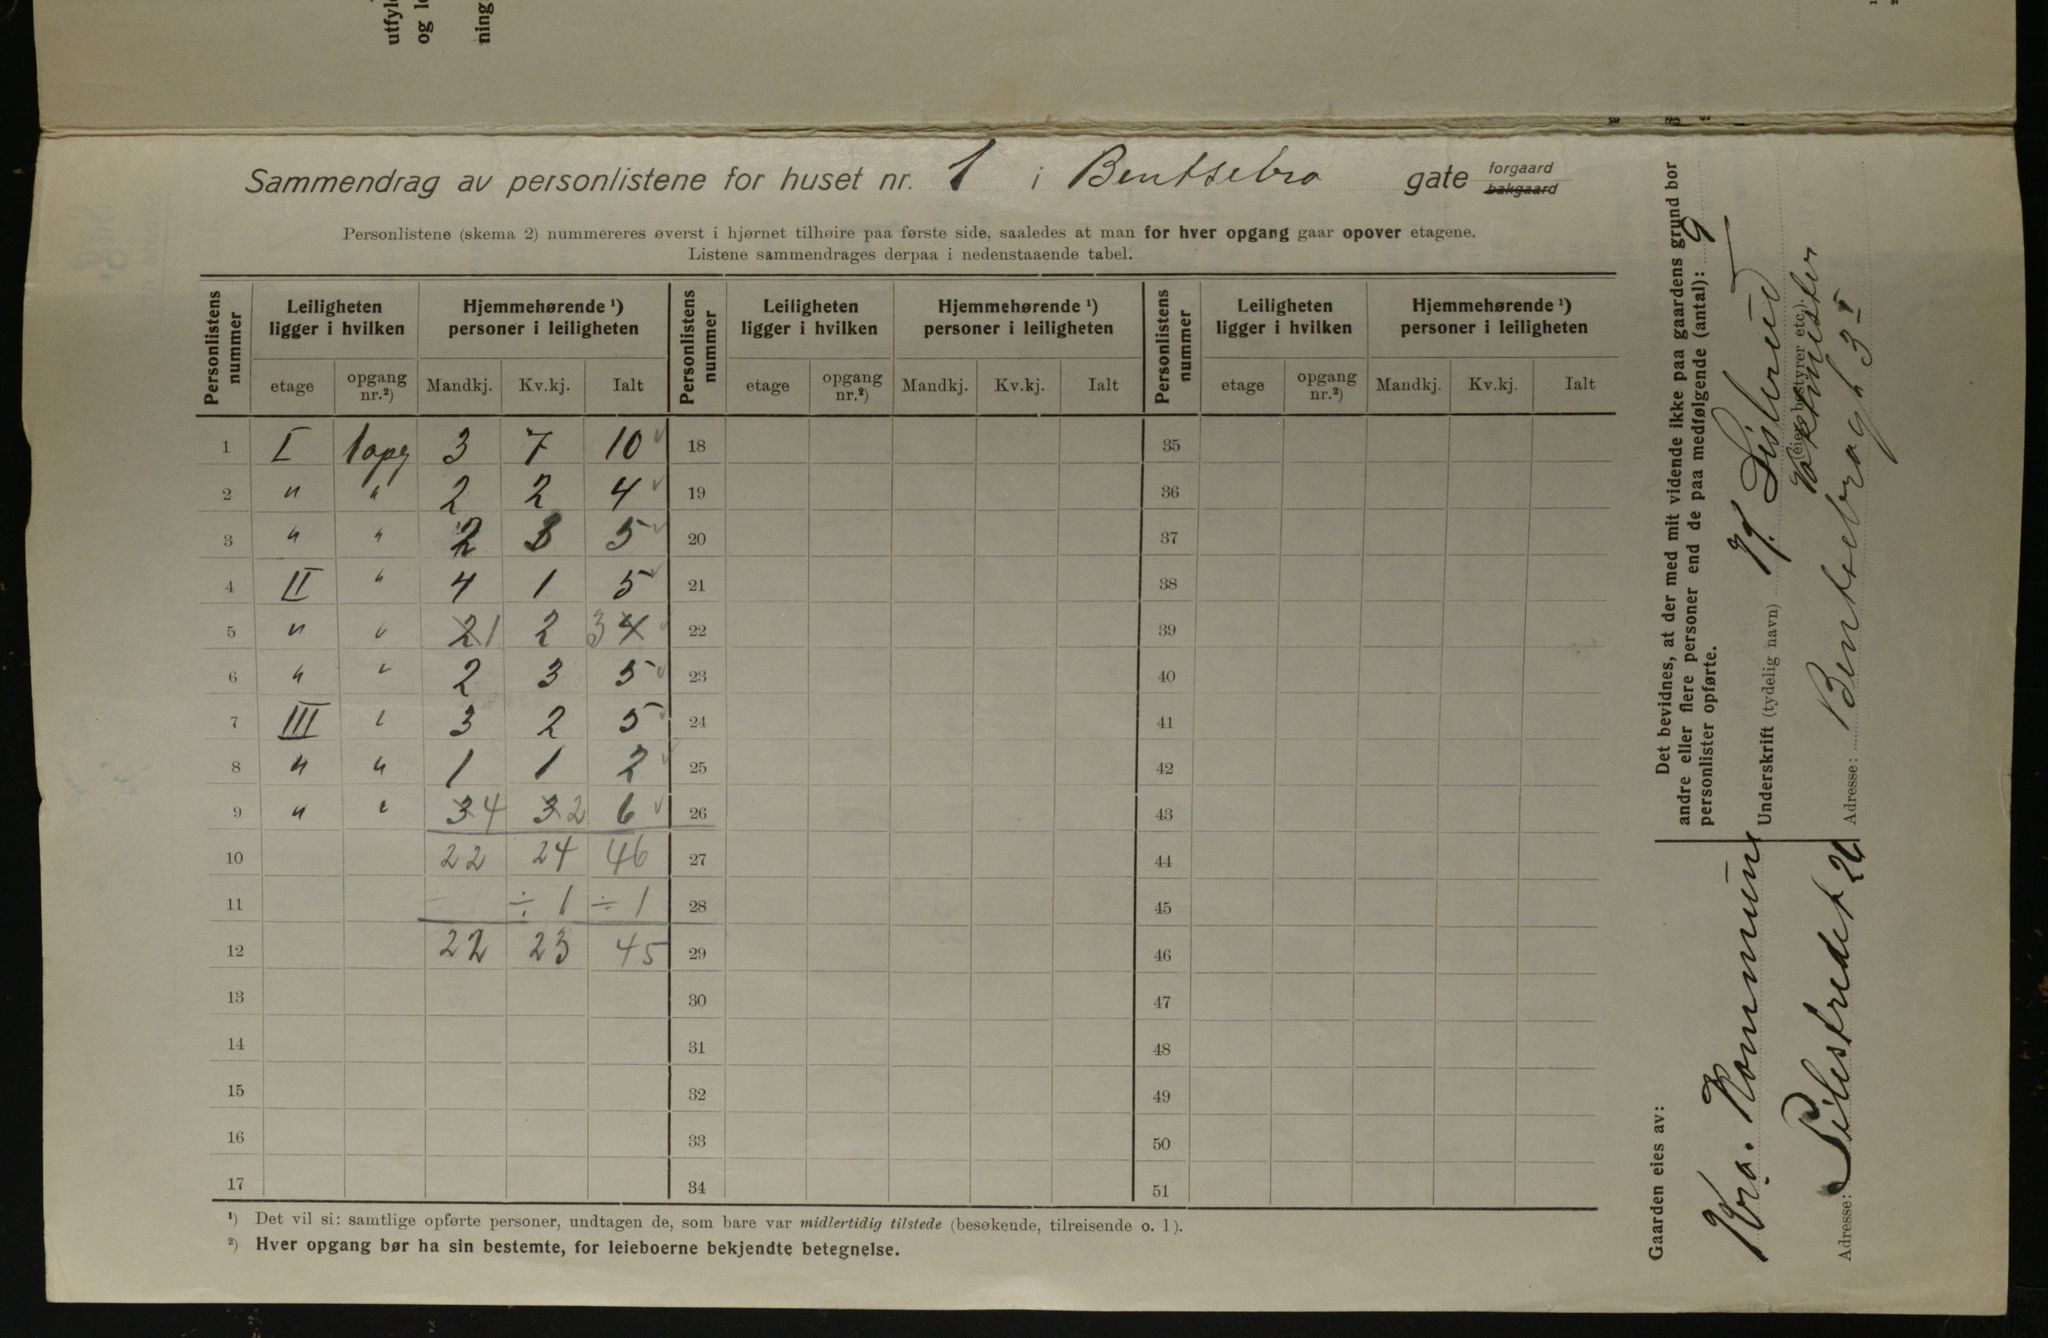 utfyl
og l
ning
Sammendrag av personlistene for huset nr. 1 i Bentsebro gate forgaard bakgaard
Personlistene (skema 2) nummereres øverst i hjørnet tilhøire paa første side, saaledes at man for hver opgang gaar opover etagene.
Listene sammendrages derpaa i nedenstaaende tabel.
Personlistens nummer | Leiligheten ligger i hvilken | Hjemmehørende ¹) personer i leiligheten | Personlistens nummer | Leiligheten ligger i hvilken | Hjemmehørende ¹) personer i leiligheten | Personlistens nummer | Leiligheten ligger i hvilken | Hjemmehørende ¹) personer i leiligheten
etage | opgang nr.²) | Mandkj. | Kv.kj. | Ialt | etage | opgang nr.²) | Mandkj. | Kv.kj. | Ialt | etage | opgang nr.²) | Mandkj. | Kv.kj. | Ialt
1 I 1 opg 3 7 10 ✓ 18 35
2 " " 2 2 4 ✓ 19 36
3 " " 2 3 5 ✓ 20 37
4 II " 4 1 5 ✓ 21 38
5 " " 2 1 2 3 4 ✓ 22 39
6 " " 2 3 5 ✓ 23 40
7 III " 3 2 5 ✓ 24 41
8 " " 1 1 2 ✓ 25 42
9 " " 3 4 3 2 6 ✓ 26 43
10 22 24 46 27 44
11 ÷ 1 ÷ 1 28 45
12 22 23 45 29 46
13 30 47
14 31 48
15 32 49
16 33 50
17 34 51
¹) Det vil si: samtlige opførte personer, undtagen de, som bare var midlertidig tilstede (besøkende, tilreisende o. l).
²) Hver opgang bør ha sin bestemte, for leieboerne bekjendte betegnelse.
Det bevidnes, at der med mit vidende ikke paa gaardens grund bor
andre eller flere personer end de paa medfølgende (antal): 9
personlister opførte.
Underskrift (tydelig navn) H. Listerud
(eier, bestyrer etc.)
Vaktmester
Adresse: Bentsebrogt 3 I
Gaarden eies av:
Kra. Kommune
Adresse: Pilestredet 26